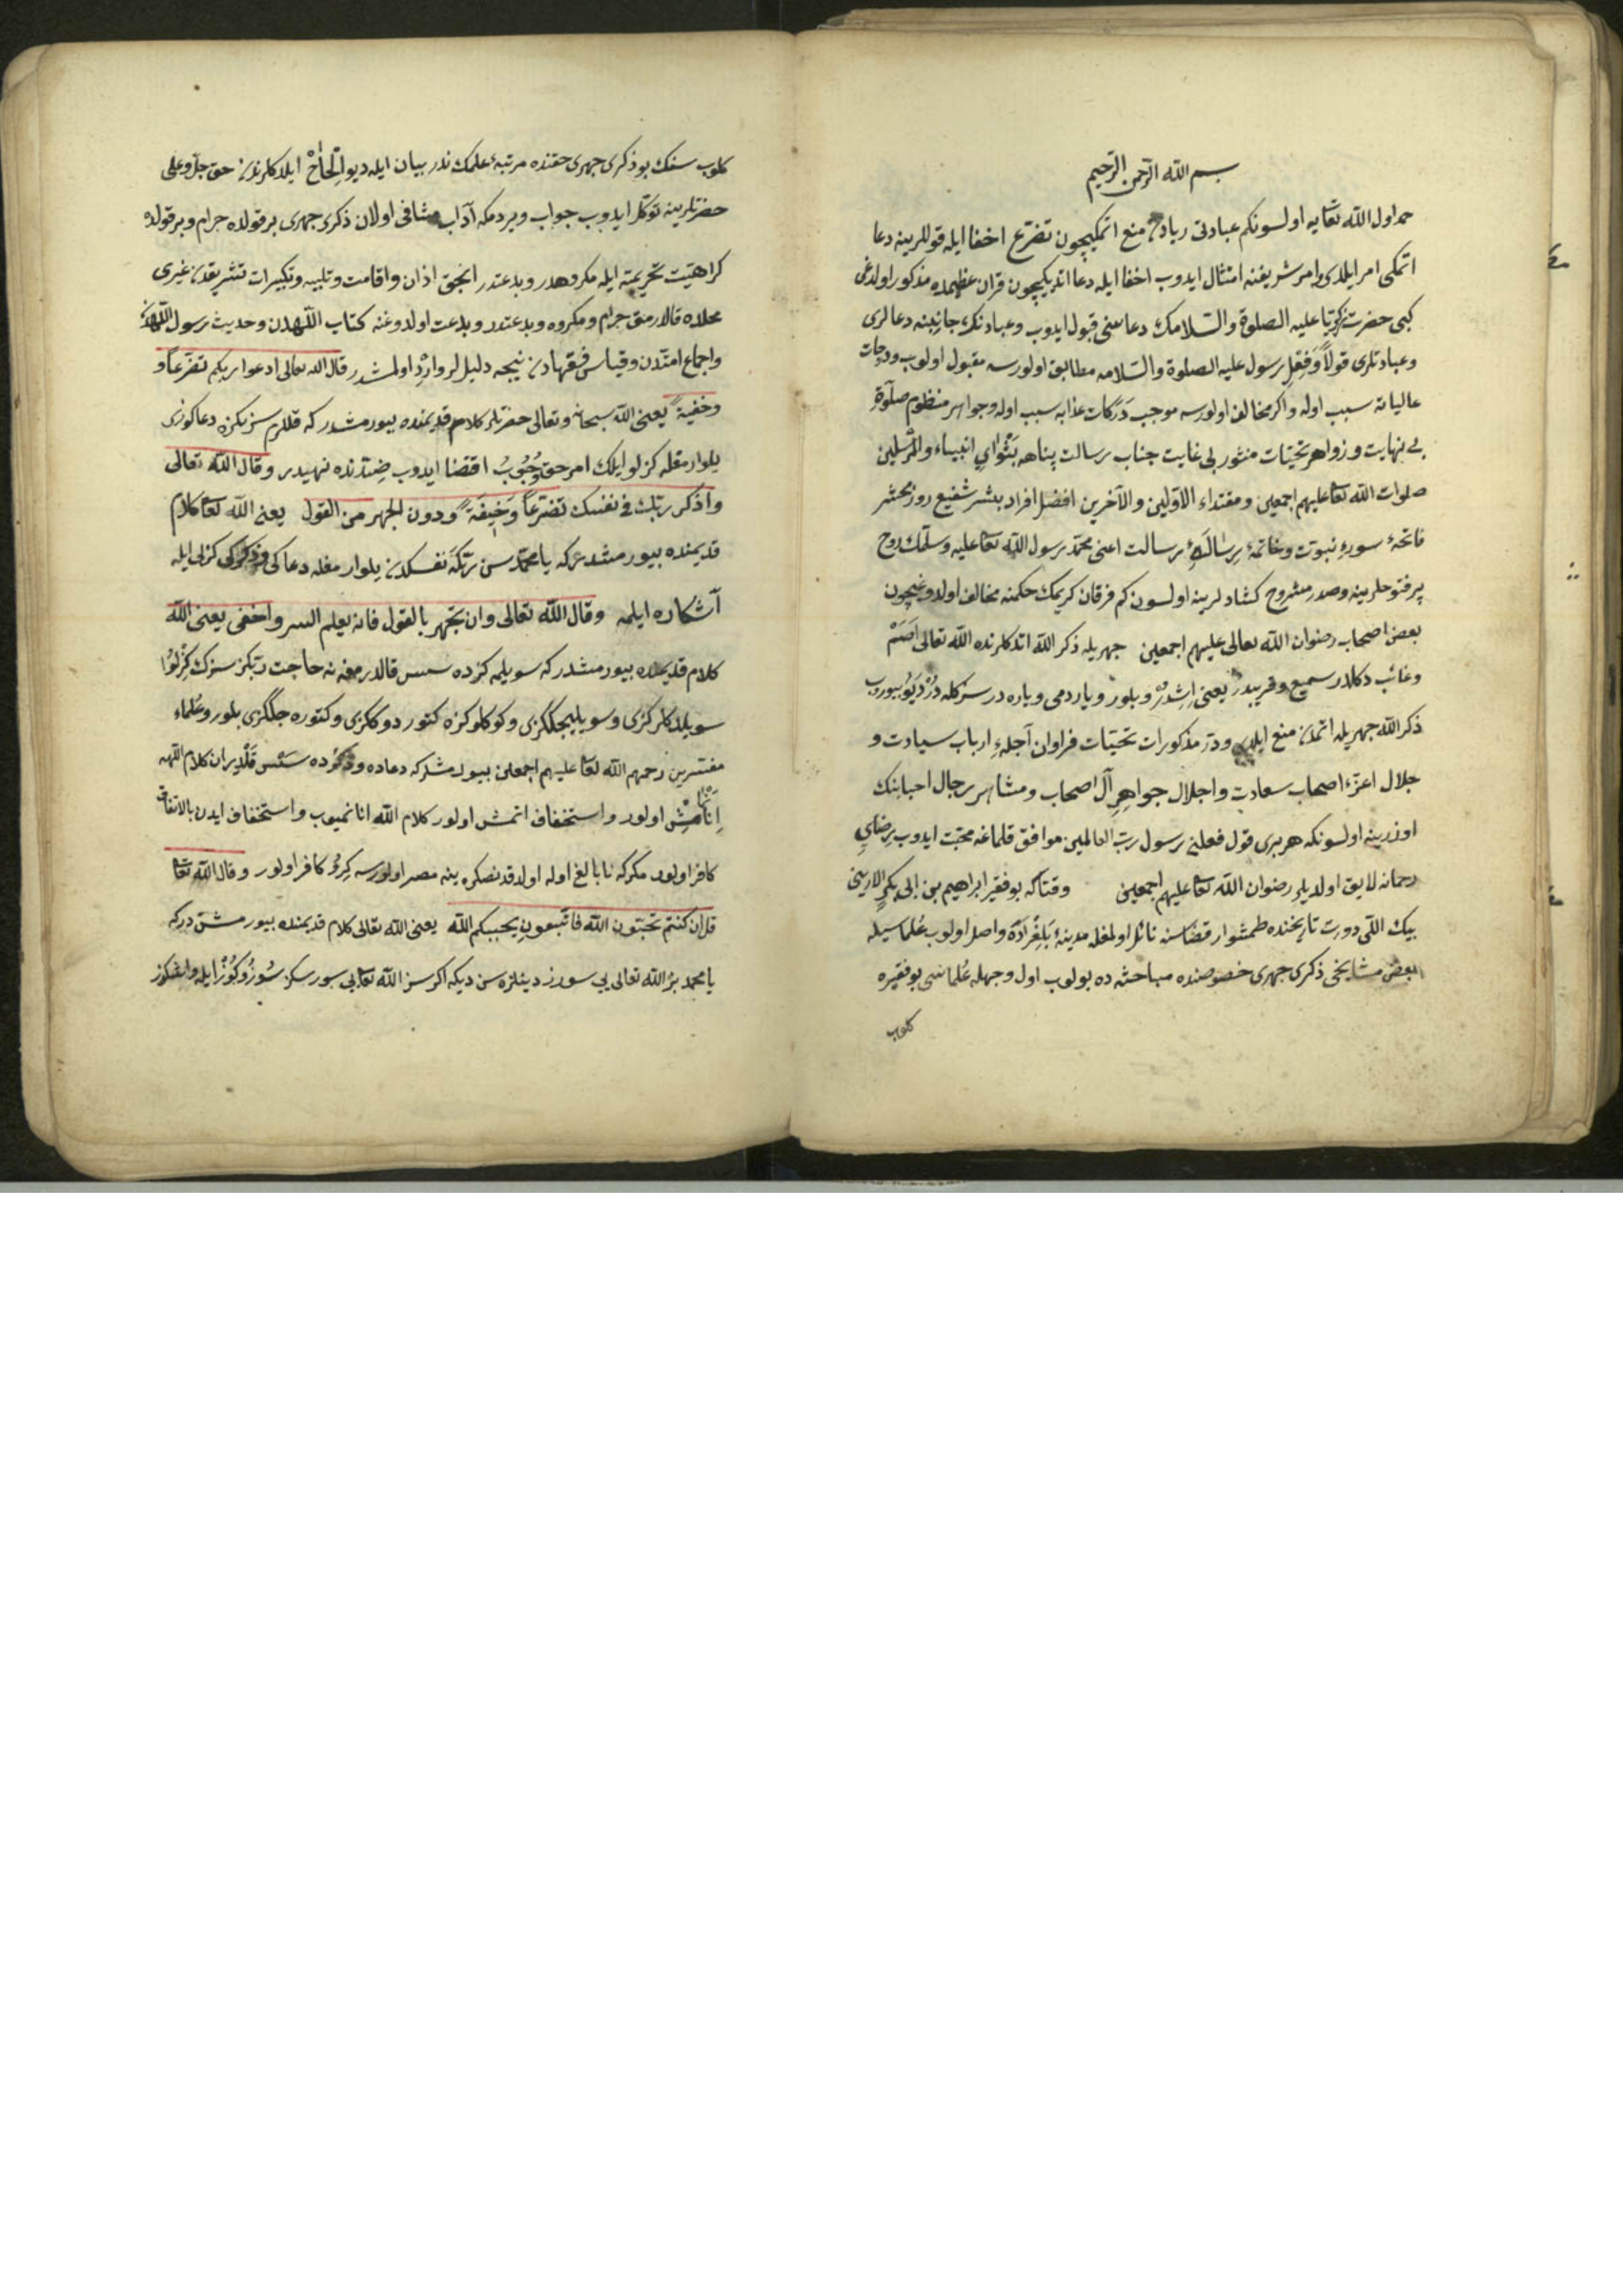 بسم الله الرحمن الرحيم
حمد اول الله تعايه اولسونكم عبادتى ريادن منع اتمكيچون تضرع اخفا ايله قوللرينه دعا
اتمكى امر ايلدى وامر شريفنه امتثال ايدوب اخفا ايله دعا اتديكيچون قران عظيمده مذكور اولدغى
كبى حضرت زكريا عليه الصلوة والسلامك دعاسنى قبول ايدوب وعبادتك جانبينه دعالرى
وعبادتلرى قولاً وَفِعْلِ رسول عليه الصلوة والسلامه مطابق اولورسه مقبول اولوب ودرجات
عالياته سبب اوله واكر مخالف اولورسه موجب دَرَكات عذابه سبب اوله وجواهر منظوم صلوٰةِ
بى نهايت وزواهر تحيّات منثور بى غايت جناب رسالت پناهه پيشواىِ انبياء والمرسلين
صلوات الله تعا عليهم اجمعين ومقتداء الاولين والآخرين افضل افراد بشر شفيع روز محشر
فاتحهٔ سورهٔ نبوت وخاتمهٔ رِسالهٔ رسالت اعنى محمد رسول الله تعا عليه وسلمك روح
پرفتوحلرينه وصدر مشروح كشادلرينه اولسون كم فرقان كريمك حكمنه مخالف اولدوغيچون
بعض اصحاب رضوان الله تعالى عليهم اجمعين جهريله ذكر الله اتدكلرنده الله تعالى اَصَمّْ
وغائب دكلدر سميع وقريبدر يعنى اِشِدُرْ وبلور وياردمى وياره در سزكله دُرْ دَيُو بيوروب
ذكر الله جهريله اتمدن منع ايلدى ودر مذكورات تحيّات فراوان آجلهٔ ارباب سيادت و
جلال اعزّهٔ اصحاب سعادت واجلال جواهرِ آل اصحاب ومشاهر رجال احبابنك
اوزرينه اولسونكه هر برى قول فعلنى رسول رب العالمين موافق قلماغه محبت ايدوب رِضاىِ
رحمانه لايق اولديلر رضوان الله تعا عليهم اجمعين وقتاكه بو فقير ابراهيم بن ابى بكرٍ الارينى
بيك اللى دورت تاريخنده طمشوار قضاسنه نائل اولمغله مدينهٔ بَلِغْرَادَهْ واصل اولوب عُلماسيله
بعض مشايخى ذكرى جهرى خصوصنده مباحثه ده بولوب اول وجهله عُلماسى بو فقيره
كلوب
كلوب سنك بو ذكرى جهرى حقنده مرتبهٔ علمك ندر بيان ايله ديو اِلْحَاحْ ايلدكلرنده حق جل وعلى
حضرتلرينه توكّل ايدوب جواب ويردمكه آداب مشافى اولان ذكرى جهرى بر قولده حرام وبر قولده
كراهيّت تحريمية ايله مكروهدر وبدعتدر انجق اذان واقامت وتلبيه وتكبيرات تشريقدن غيرى
محلده قالدرمق حرام ومكروه وبدعتدر وبدعت اولدوغنه كتاب اللهدن وحديث رسول اللهدن
واجماع امتدن وقياس فقهادن نيجه دليللر وارِدْ اولمشدر قال الله تعالى ادعوا ربكم تضرعاً و
وخفيةً يعنى الله سبحانه وتعالى حضرتلرى كلام قديمنده بيورمشدر كه قللرم سز ربكزه دعاكوزى
يلوارمغله كزلو ايلك امر حق وُجُوبُ اقتضا ايدوب ضِدّنده نهيدر وقال الله تعالى
واذكر ربك فى نفسك تضرعاً وَخِيفَةً ودون الجهر من القول يعنى الله تعا كلام
قديمنده بيورمشدر كه يا محمد سن ربّكَه نفسكدن يلوارمغله دعاكى وذكركى كزلى ايله
آشكاره ايلمه وقال الله تعالى وان تجهر بالقول فانه يعلم السر واخفى يعنى الله
كلام قديمنده بيورمشدر كه سويلمه كزده سس قالدرمغه نه حاجت ربّكز سزك كِزْلُو
سويلدكلركزى وسويليجكلكزى وكوكلوكزه كتوردوككزى وكتوره جگگزى بلور وعُلماء
مفسرين رحمهم الله تعا عليهم اجمعين بيورمشلر كه دعاده وذكرده سَسْ قَلْدِيران كلام اللهه
اِنَانْمَمِشْ اولور واستخفاف اتمش اولور كلام الله انانميوب واستخفاف ايدن بالاتفاق
كافر اولور مكر كه نابالغ اوله اولدقدنصكره ينه مصر اولورسه كِرُو كافر اولور وقال الله تعا
قل ان كنتم تحبون الله فاتبعونى يحببكم الله يعنى الله تعالى كلام قديمنده بيورمشدر كه
يا محمد بزُ الله تعالى يى سورز دينلره سن ديكه اكر سز الله تعا يى سورسكز سُوزُوكُوزْ ايله وايشكوز